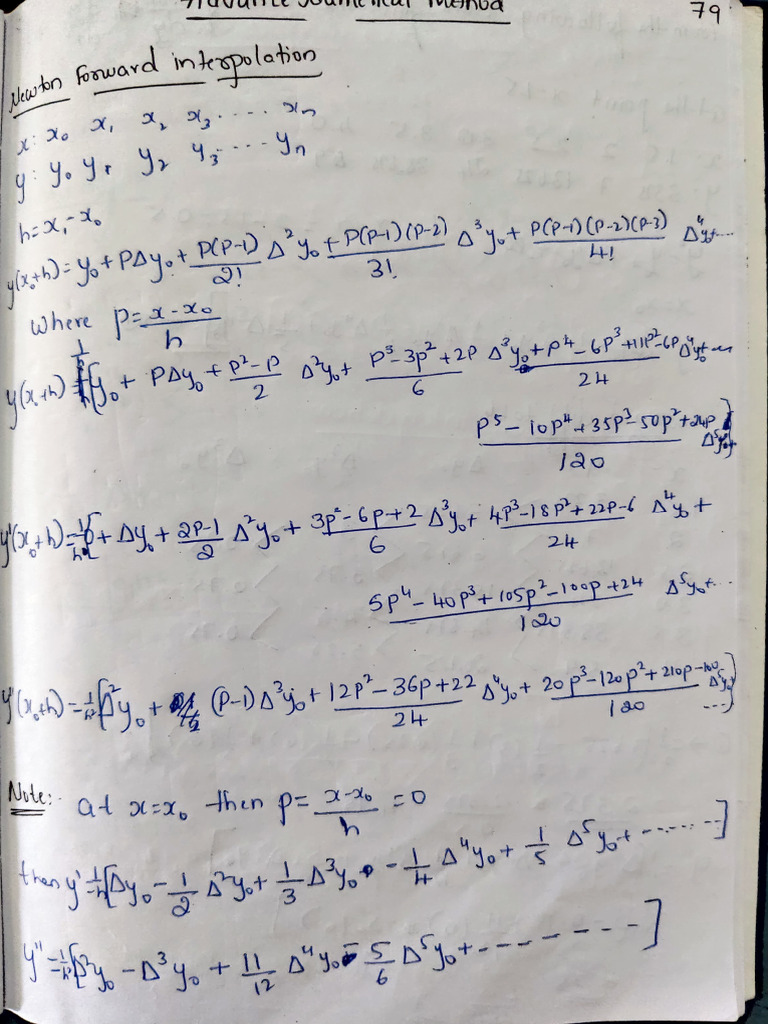 Advance Numerical Method
79
Newton Forward interpolation
x: x₀ x₁ x₂ x₃ .... xₙ
y: y₀ y₁ y₂ y₃ .... yₙ
h = x₁ - x₀
y(x₀+h) = y₀ + PΔy₀ + P(P-1)/2! Δ²y₀ + P(P-1)(P-2)/3! Δ³y₀ + P(P-1)(P-2)(P-3)/4! Δ⁴y₀+...
where P = x-x₀/h
y(x₀+h) = 1/h [y₀ + PΔy₀ + P²-P/2 Δ²y₀ + P³-3P²+2P/6 Δ³y₀ + P⁴-6P³+11P²-6P/24 Δ⁴y₀+...
P⁵-10P⁴+35P³-50P²+24P/120 Δ⁵y₀+]
y'(x₀+h) = 1/h [0 + Δy₀ + 2P-1/2 Δ²y₀ + 3P²-6P+2/6 Δ³y₀ + 4P³-18P²+22P-6/24 Δ⁴y₀ +
5P⁴-40P³+105P²-100P+24/120 Δ⁵y₀+...
y''(x₀+h) = 1/h² [Δ²y₀ + (P-1)Δ³y₀ + 12P²-36P+22/24 Δ⁴y₀ + 20P³-120P²+210P-100/120 Δ⁵y₀ ...]
Note:- at x=x₀ then P = x-x₀/h = 0
then y' = 1/h [Δy₀ - 1/2 Δ²y₀ + 1/3 Δ³y₀ - 1/4 Δ⁴y₀ + 1/5 Δ⁵y₀ + ......]
y'' = 1/h² [Δ²y₀ - Δ³y₀ + 11/12 Δ⁴y₀ - 5/6 Δ⁵y₀ + ........]